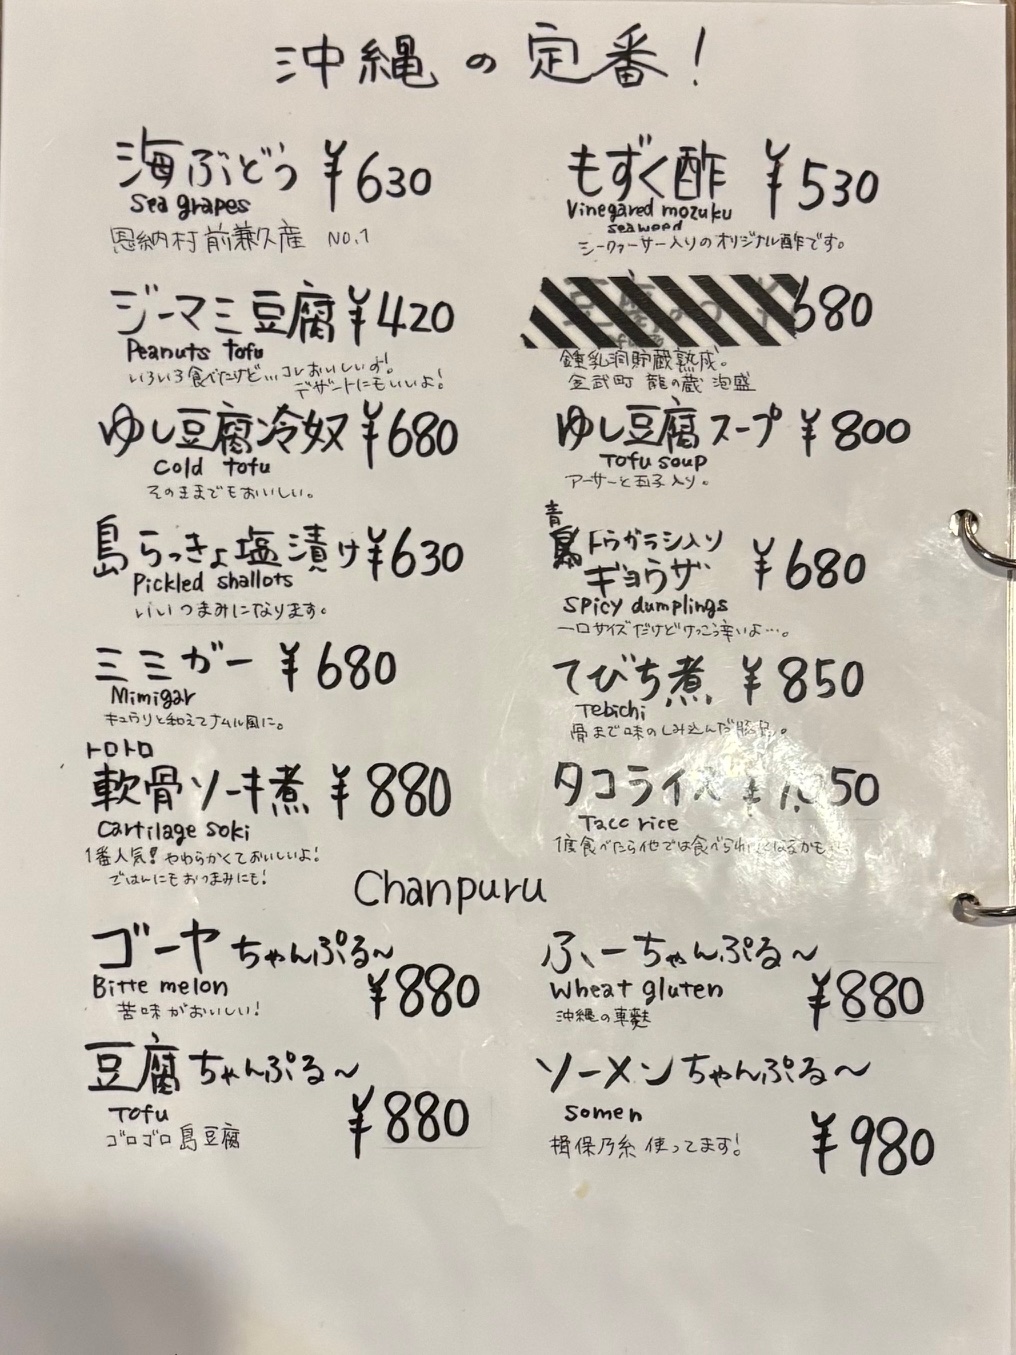 沖縄の定番!
海ぶどう ¥630
Sea grapes
恩納村前兼久産 NO.1
もずく酢 ¥530
Vinegared mozuku
seaweed
シークァーサー入りのオリジナル酢です。
ジーマミ豆腐 ¥420
Peanuts tofu
いろいろ食べたけど…コレおいしいす!
デザートにもいいよ!
680
鍾乳洞貯蔵熟成。
金武町 龍の蔵 泡盛
ゆし豆腐冷奴 ¥680
Cold tofu
そのままでもおいしい。
ゆし豆腐スープ ¥800
Tofu soup
アーサーと玉子入り。
島らっきょ塩漬け ¥630
Pickled shallots
いいつまみになります。
青
島トウガラシ入り
ギョウザ ¥680
Spicy dumplings
一口サイズだけどけっこう辛いよ…。
ミミガー ¥680
Mimigar
キュウリと和えてナムル風に。
てびち煮 ¥850
Tebichi
骨まで味のしみ込んだ豚足。
トロトロ
軟骨ソーキ煮 ¥880
Cartilage soki
1番人気!やわらかくておいしいよ!
ごはんにもおつまみにも!
タコライス ¥1,050
Taco rice
1度食べたら他では食べられ
Chanpuru
ゴーヤちゃんぷる〜
Bitte melon ¥880
苦味がおいしい!
ふーちゃんぷる〜
Wheat gluten ¥880
沖縄の車麩
豆腐ちゃんぷる〜
Tofu ¥880
ゴロゴロ島豆腐
ソーメンちゃんぷる〜
Somen ¥980
揖保乃糸使ってます!